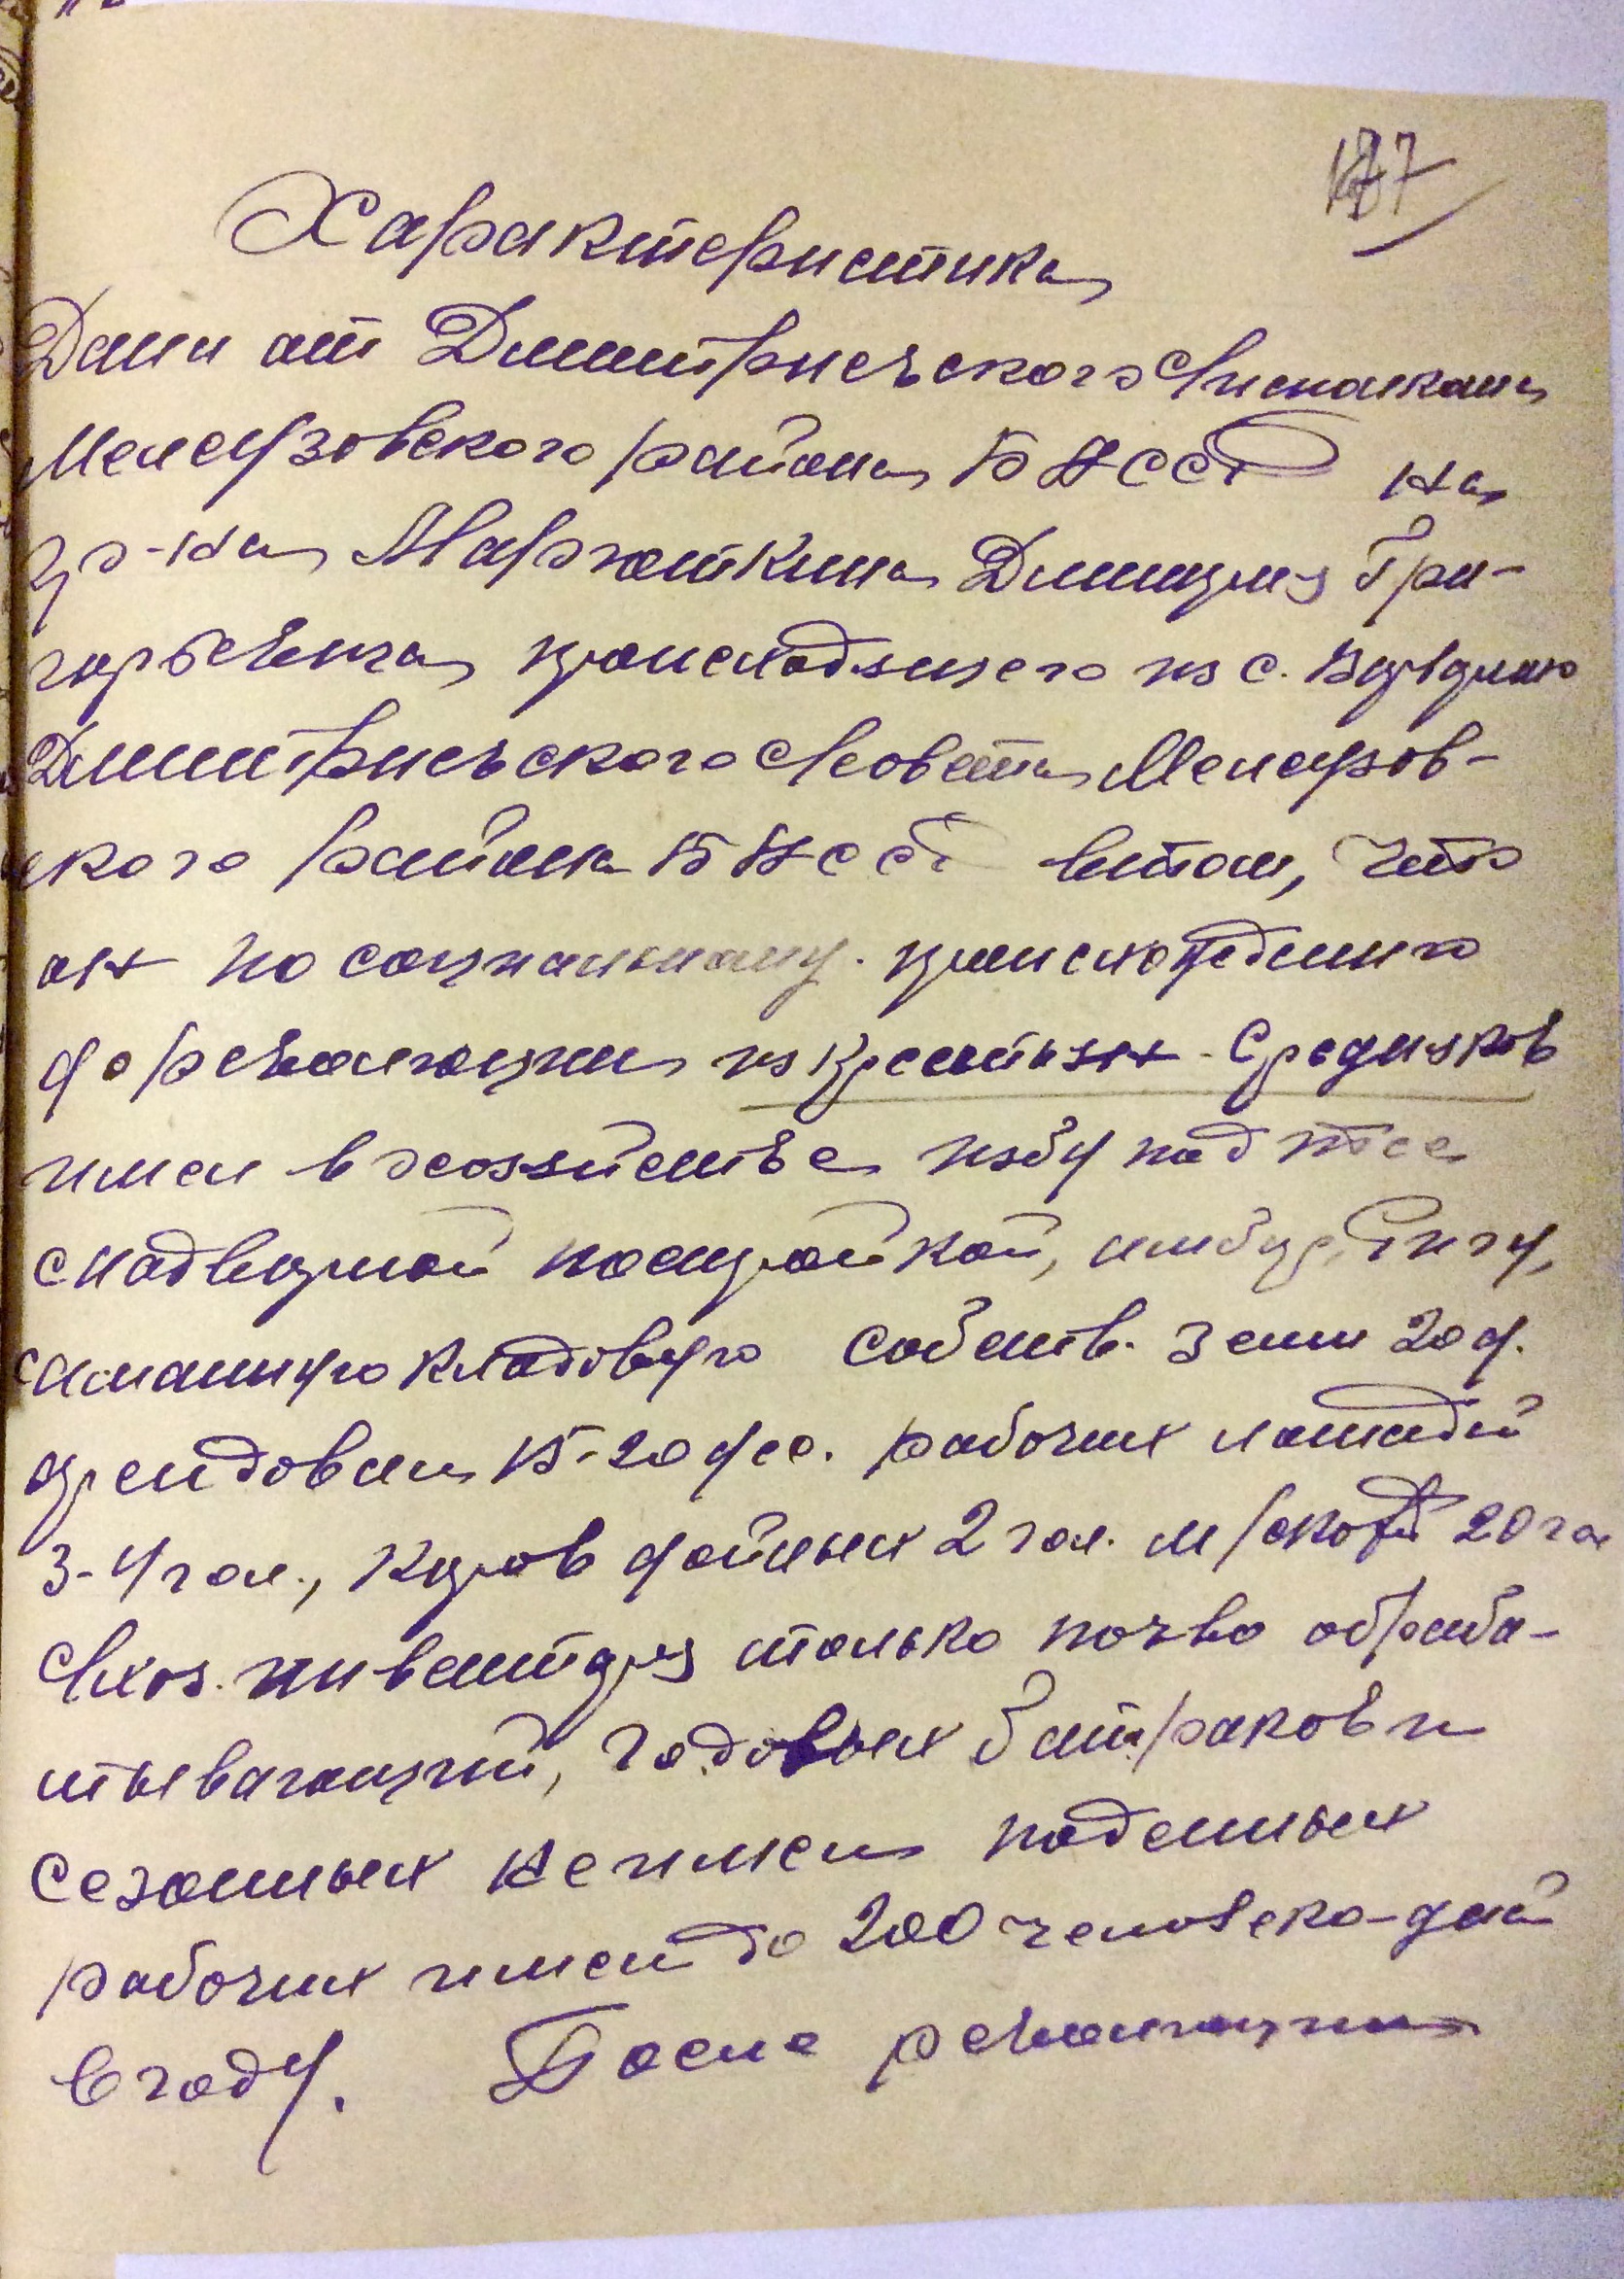 177
Характеристика
Дана от Дмитриевского С/исполкома
Мелеузовского района БАССР на
гр-на Марюткина Димитрия Гри-
горьевича происходящего из с.
Дмитриевского С/совета Мелеузов-
ского района БАССР в том, что
он по социальному происхождению
до революции из крестьян-середняков
имел в хозяйстве избу под тес
с надворной постройкой, амбар, ригу,
саманную кладовую собств. земли 20 д.
арендовал 15-20 дес. рабочих лошадей
3-4 гол., коров дойных 2 гол. м/скота 20 гол
С/хоз. инвентарь только почво обраба-
тывающий, годовых батраков и
сезонных не имел поденных
рабочих имел до 200 человеко-дней
в году. После революции